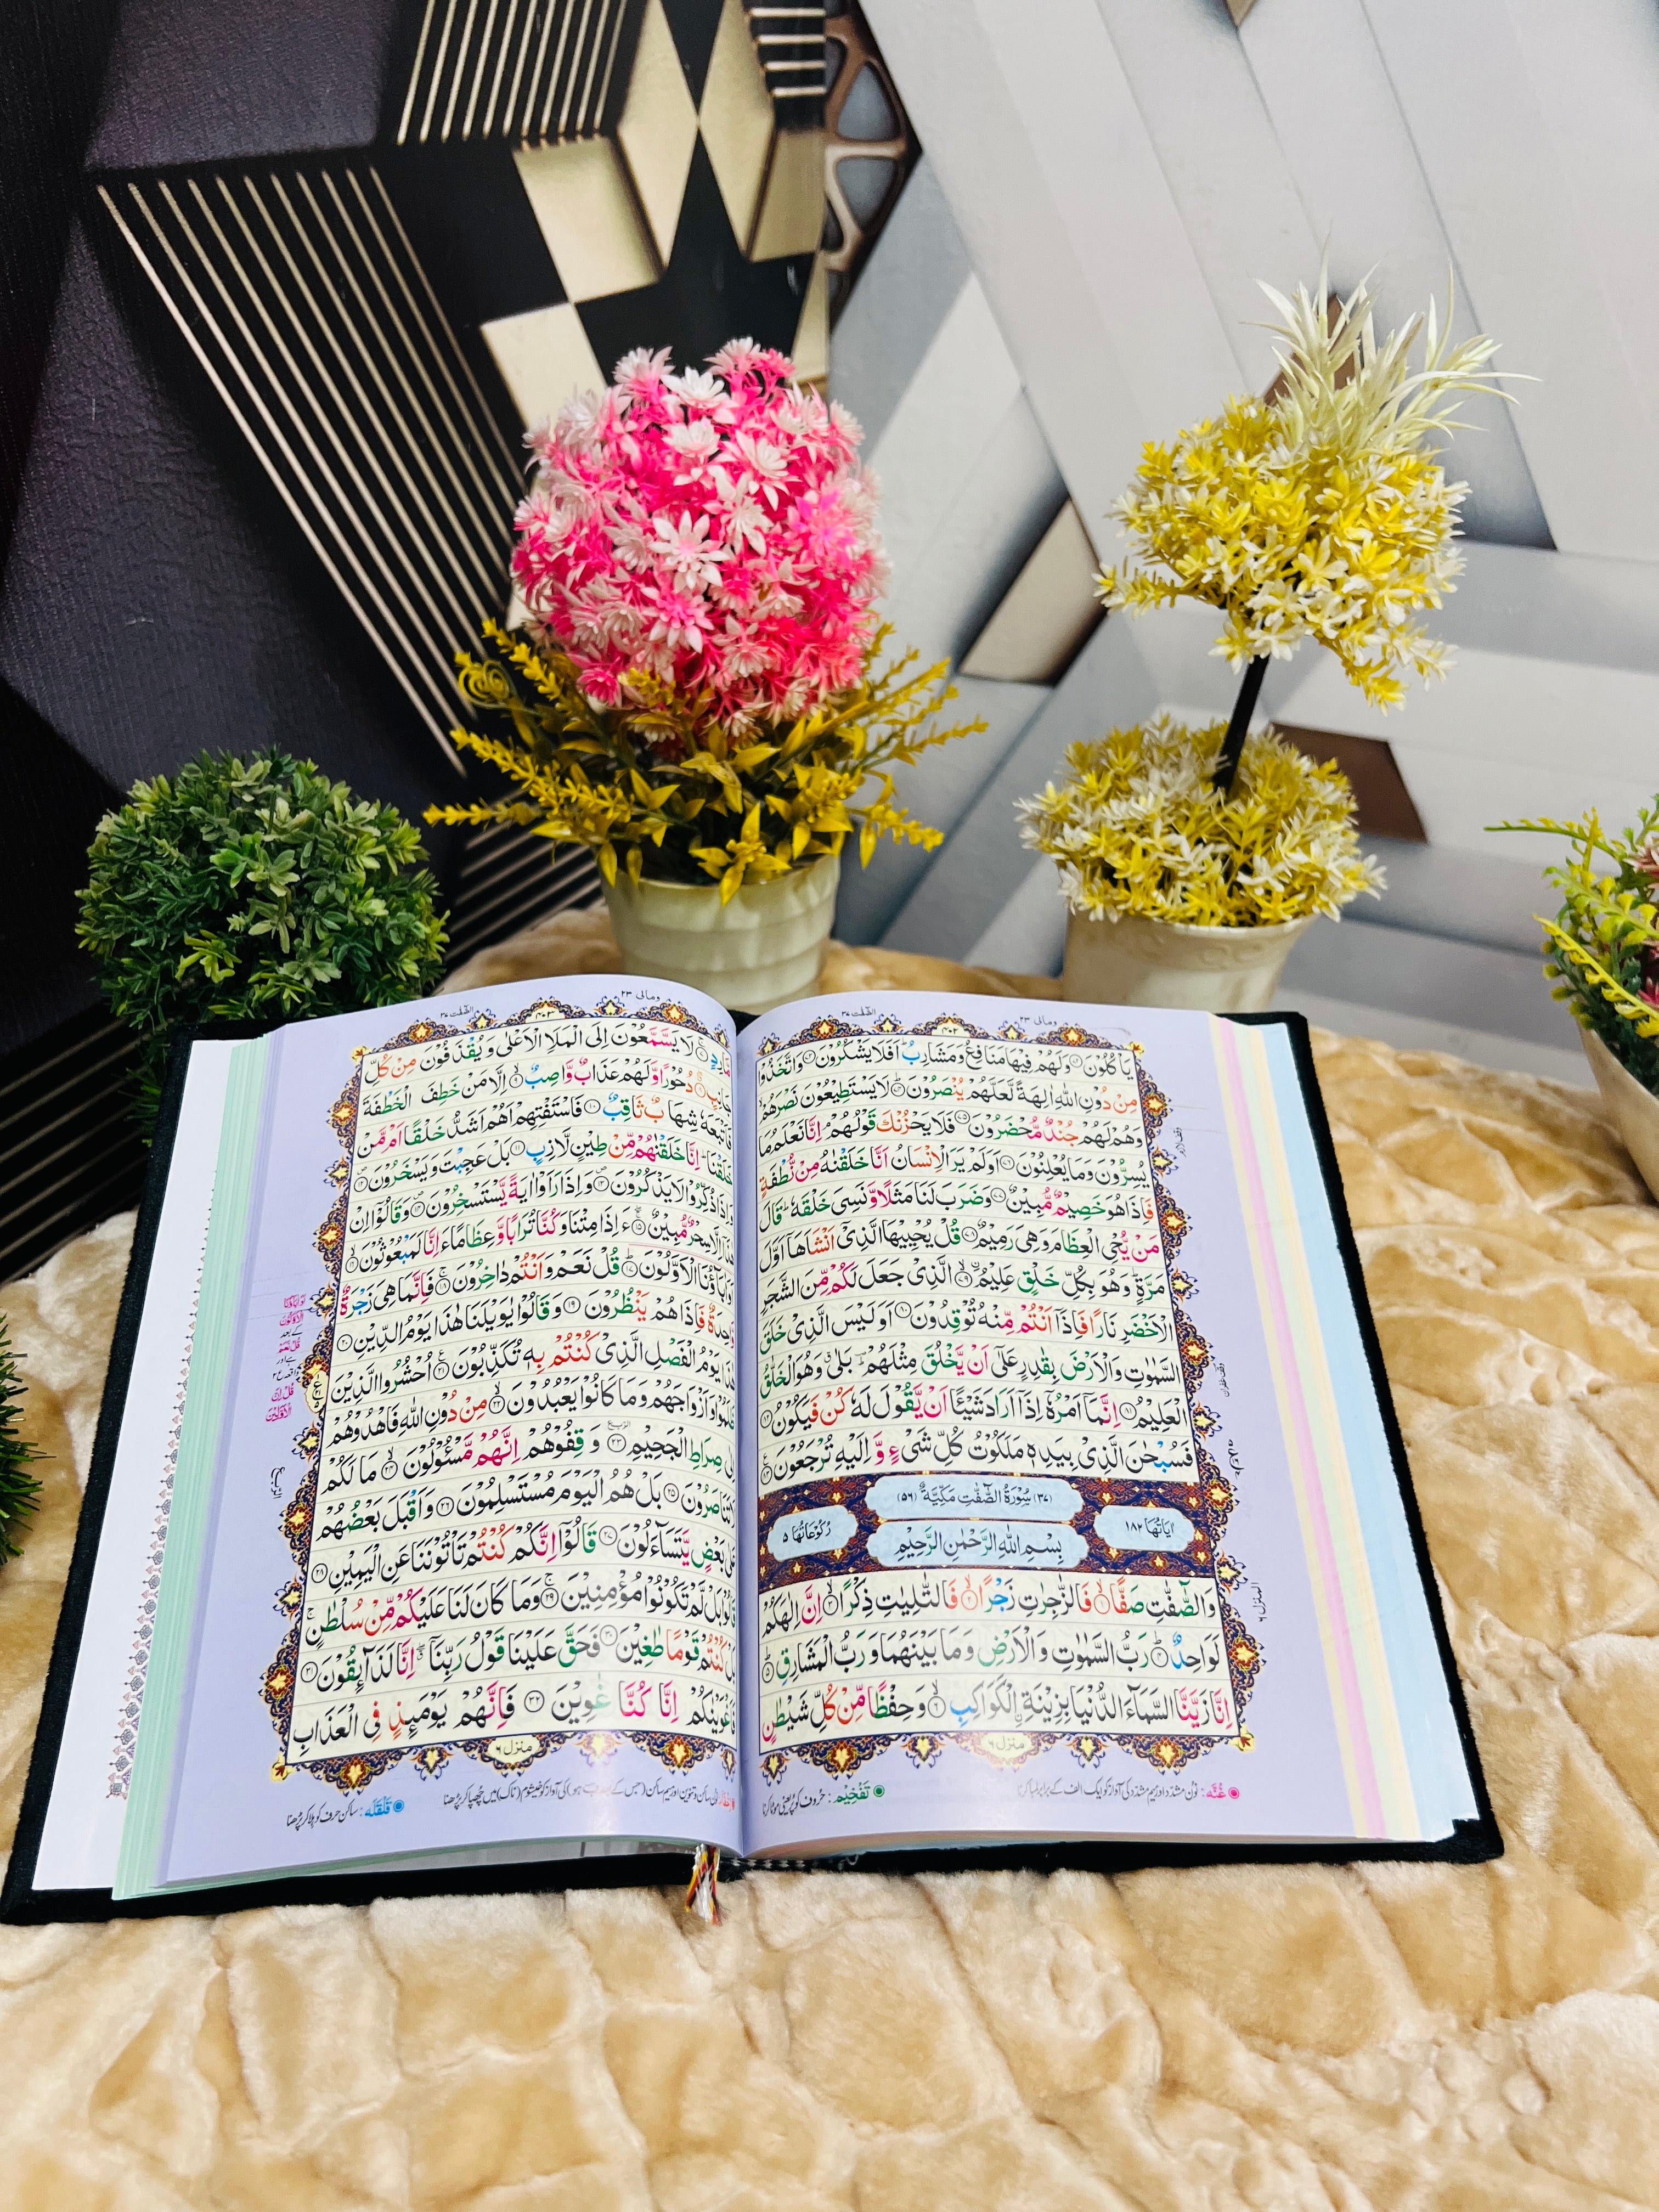 ومالی ٢٣
٤٠٢
الصّٰٓفّٰت ٣٧
يَاْكُلُوْنَ ۝٧٢ وَلَهُمْ فِيْهَا مَنَافِعُ وَمَشَارِبُ ؕ اَفَلَا يَشْكُرُوْنَ ۝٧٣ وَاتَّخَذُوْا
مِنْ دُوْنِ اللّٰهِ اٰلِهَةً لَّعَلَّهُمْ يُنْصَرُوْنَ ۝٧٤ لَا يَسْتَطِيْعُوْنَ نَصْرَهُمْ ۙ
وَهُمْ لَهُمْ جُنْدٌ مُّحْضَرُوْنَ ۝٧٥ فَلَا يَحْزُنْكَ قَوْلُهُمْ ۘ اِنَّا نَعْلَمُ مَا
يُسِرُّوْنَ وَمَا يُعْلِنُوْنَ ۝٧٦ اَوَلَمْ يَرَ الْاِنْسَانُ اَنَّا خَلَقْنٰهُ مِنْ نُّطْفَةٍ
فَاِذَا هُوَ خَصِيْمٌ مُّبِيْنٌ ۝٧٧ وَضَرَبَ لَنَا مَثَلًا وَّنَسِيَ خَلْقَهٗ ؕ قَالَ
مَنْ يُّحْيِ الْعِظَامَ وَهِيَ رَمِيْمٌ ۝٧٨ قُلْ يُحْيِيْهَا الَّذِيْۤ اَنْشَاَهَاۤ اَوَّلَ
مَرَّةٍ ؕ وَهُوَ بِكُلِّ خَلْقٍ عَلِيْمٌ ۝٧٩ ۙ الَّذِيْ جَعَلَ لَكُمْ مِّنَ الشَّجَرِ
الْاَخْضَرِ نَارًا فَاِذَاۤ اَنْتُمْ مِّنْهُ تُوْقِدُوْنَ ۝٨٠ اَوَلَيْسَ الَّذِيْ خَلَقَ
السَّمٰوٰتِ وَالْاَرْضَ بِقٰدِرٍ عَلٰۤى اَنْ يَّخْلُقَ مِثْلَهُمْ ؕ بَلٰى ۗ وَهُوَ الْخَلّٰقُ
الْعَلِيْمُ ۝٨١ اِنَّمَاۤ اَمْرُهٗۤ اِذَاۤ اَرَادَ شَيْـًٔا اَنْ يَّقُوْلَ لَهٗ كُنْ فَيَكُوْنُ ۝٨٢
فَسُبْحٰنَ الَّذِيْ بِيَدِهٖ مَلَكُوْتُ كُلِّ شَيْءٍ وَّ اِلَيْهِ تُرْجَعُوْنَ ۝٨٣
اٰيَاتُهَا ١٨٢
(٣٧) سُوْرَةُ الصّٰٓفّٰتِ مَكِّيَّةٌ (٥٦)
رُكُوْعَاتُهَا ٥
بِسْمِ اللّٰهِ الرَّحْمٰنِ الرَّحِيْمِ
وَالصّٰٓفّٰتِ صَفًّا ۝١ فَالزّٰجِرٰتِ زَجْرًا ۝٢ فَالتّٰلِيٰتِ ذِكْرًا ۝٣ اِنَّ اِلٰهَكُمْ
لَوَاحِدٌ ۝٤ رَبُّ السَّمٰوٰتِ وَالْاَرْضِ وَمَا بَيْنَهُمَا وَرَبُّ الْمَشَارِقِ ۝٥
اِنَّا زَيَّنَّا السَّمَآءَ الدُّنْيَا بِزِيْنَةِ ِۨالْكَوَاكِبِ ۝٦ وَحِفْظًا مِّنْ كُلِّ شَيْطٰنٍ
منزل ٦
غُنَّه: نون مشدد اور میم مشدد کی آواز کو ایک الف کے برابر لمبا کرنا
تَفْخِيْم: حروف کو پُر یعنی موٹا کرنا
ومالی ٢٣
٤٠٣
الصّٰٓفّٰت ٣٧
مَّارِدٍ ۝٧ لَا يَسَّمَّعُوْنَ اِلَى الْمَلَاِ الْاَعْلٰى وَيُقْذَفُوْنَ مِنْ كُلِّ
جَانِبٍ ۝٨ دُحُوْرًا وَّلَهُمْ عَذَابٌ وَّاصِبٌ ۝٩ اِلَّا مَنْ خَطِفَ الْخَطْفَةَ
فَاَتْبَعَهٗ شِهَابٌ ثَاقِبٌ ۝١٠ فَاسْتَفْتِهِمْ اَهُمْ اَشَدُّ خَلْقًا اَمْ مَّنْ
خَلَقْنَا ؕ اِنَّا خَلَقْنٰهُمْ مِّنْ طِيْنٍ لَّازِبٍ ۝١١ بَلْ عَجِبْتَ وَيَسْخَرُوْنَ ۝١٢
وَاِذَا ذُكِّرُوْا لَا يَذْكُرُوْنَ ۝١٣ وَاِذَا رَاَوْا اٰيَةً يَّسْتَسْخِرُوْنَ ۝١٤ وَقَالُوْۤا اِنْ
هٰذَاۤ اِلَّا سِحْرٌ مُّبِيْنٌ ۝١٥ ءَاِذَا مِتْنَا وَكُنَّا تُرَابًا وَّعِظَامًا ءَاِنَّا لَمَبْعُوْثُوْنَ ۝١٦
اَوَاٰبَآؤُنَا الْاَوَّلُوْنَ ۝١٧ قُلْ نَعَمْ وَاَنْتُمْ دَاخِرُوْنَ ۝١٨ فَاِنَّمَا هِيَ زَجْرَةٌ
وَّاحِدَةٌ فَاِذَا هُمْ يَنْظُرُوْنَ ۝١٩ وَقَالُوْا يٰوَيْلَنَا هٰذَا يَوْمُ الدِّيْنِ ۝٢٠
هٰذَا يَوْمُ الْفَصْلِ الَّذِيْ كُنْتُمْ بِهٖ تُكَذِّبُوْنَ ۝٢١ اُحْشُرُوا الَّذِيْنَ
ظَلَمُوْا وَاَزْوَاجَهُمْ وَمَا كَانُوْا يَعْبُدُوْنَ ۝٢٢ مِنْ دُوْنِ اللّٰهِ فَاهْدُوْهُمْ
اِلٰى صِرَاطِ الْجَحِيْمِ ۝٢٣ وَقِفُوْهُمْ اِنَّهُمْ مَّسْـُٔوْلُوْنَ ۝٢٤ مَا لَكُمْ
لَا تَنَاصَرُوْنَ ۝٢٥ بَلْ هُمُ الْيَوْمَ مُسْتَسْلِمُوْنَ ۝٢٦ وَاَقْبَلَ بَعْضُهُمْ
عَلٰى بَعْضٍ يَّتَسَآءَلُوْنَ ۝٢٧ قَالُوْۤا اِنَّكُمْ كُنْتُمْ تَاْتُوْنَنَا عَنِ الْيَمِيْنِ ۝٢٨
قَالُوْا بَلْ لَّمْ تَكُوْنُوْا مُؤْمِنِيْنَ ۝٢٩ وَمَا كَانَ لَنَا عَلَيْكُمْ مِّنْ سُلْطٰنٍ ۚ
بَلْ كُنْتُمْ قَوْمًا طٰغِيْنَ ۝٣٠ فَحَقَّ عَلَيْنَا قَوْلُ رَبِّنَاۤ ۖ اِنَّا لَذَآئِقُوْنَ ۝٣١
فَاَغْوَيْنٰكُمْ اِنَّا كُنَّا غٰوِيْنَ ۝٣٢ فَاِنَّهُمْ يَوْمَئِذٍ فِي الْعَذَابِ
منزل ٦
ساکن وتنوین اور میم ساکن (جس کے بعد ب ہو) کی آواز کو خیشوم (ناک) میں چھپا کر پڑھنا
قَلْقَلَه: ساکن حرف کو ہلا کر پڑھنا